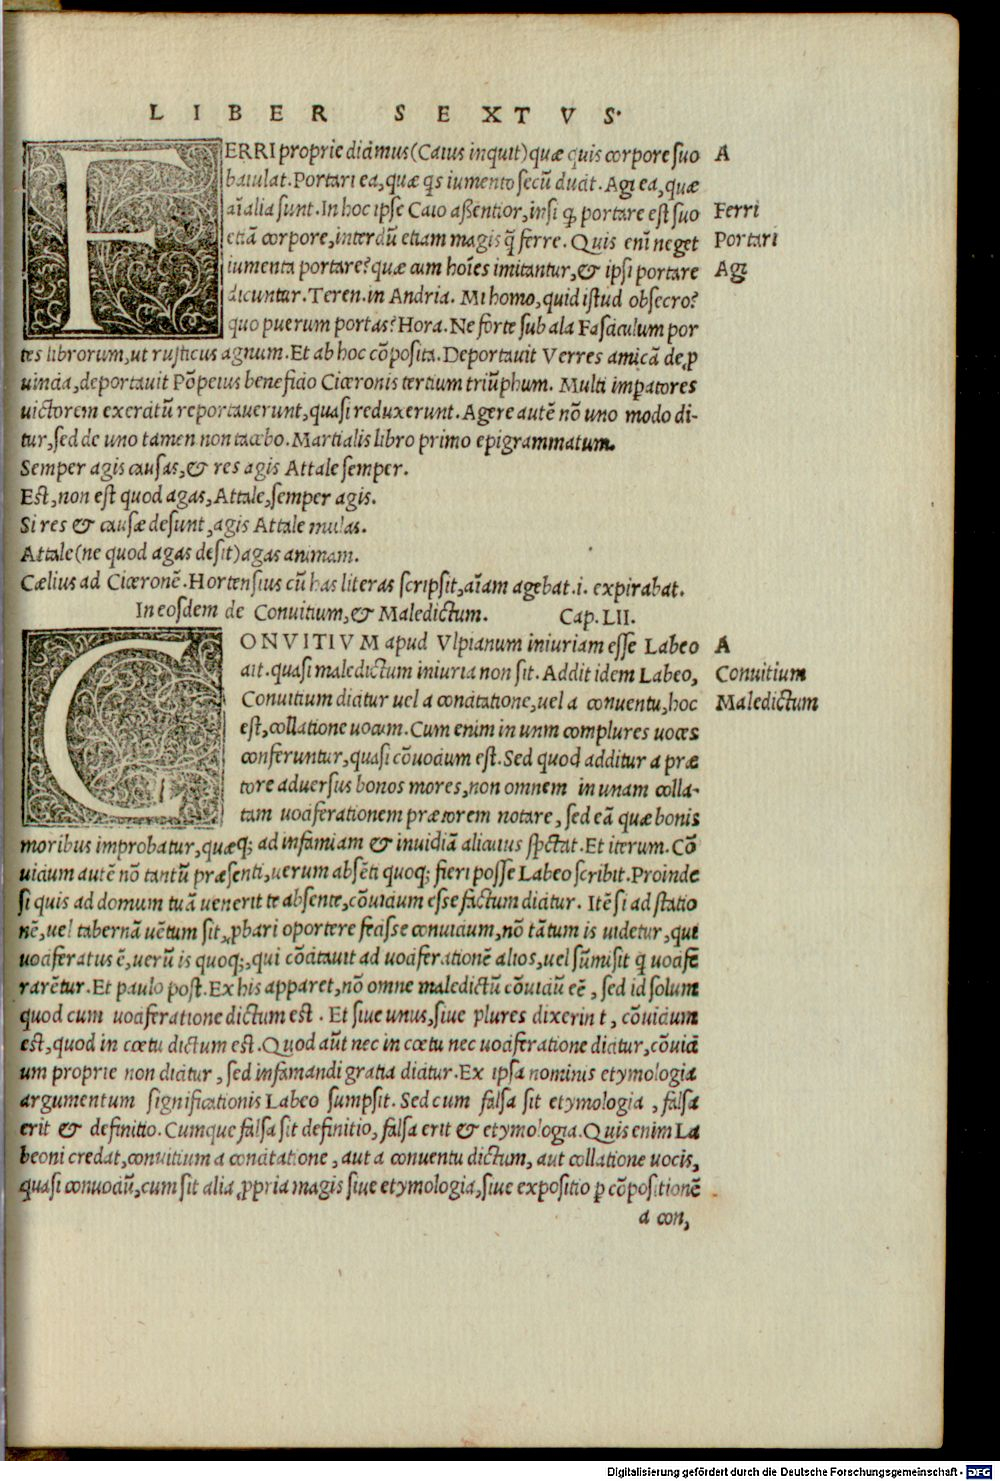 LIBER SEXTVS.
FERRI proprie dicimus (Caius inquit) quæ quis corpore suo
baiulat. Portari ea, quæ q̃s iumento secũ ducit. Agi ea, quæ
aĩalia sunt. In hoc ipse Caio aßentior, insi ꝙ portare est suo
etiã corpore, interdũ etiam magis q̃ ferre. Quis enĩ neget
iumenta portare? quæ cum hoĩes imitantur, & ipsi portare
dicuntur. Teren. in Andria. Mi homo, quid istud obsecro?
quo puerum portas? Hora. Ne forte sub ala Fasciculum por
tes librorum, ut rusticus agnum. Et ab hoc cõposita. Deportauit Verres amicã de ꝓ
uincia, deportauit Põpeius beneficio Ciceronis tertium triũphum. Multi imꝑatores
uictorem exercitũ reportauerunt, quasi reduxerunt. Agere autẽ nõ uno modo di-
tur, sed de uno tamen non tacebo. Martialis libro primo epigrammatum.
Semper agis causas, & res agis Attale semper.
Est, non est quod agas, Attale, semper agis.
Si res & causæ desunt, agis Attale mulas.
Attale (ne quod agas desit) agas animam.
Cælius ad Ciceronẽ. Hortensius cũ has literas scripsit, aĩam agebat .i. expirabat.
In eosdem de Conuitium, & Maledictum. Cap. LII.
CONVITIVM apud Vlpianum iniuriam esse Labeo
ait. quasi maledictum iniuria non sit. Addit idem Labeo,
Conuitium dicitur uel a concitatione, uel a conuentu, hoc
est, collatione uocum. Cum enim in unm complures uoces
conferuntur, quasi cõuocium est. Sed quod additur a præ
tore aduersus bonos mores, non omnem in unam colla-
tam uociferationem prætorem notare, sed eã quæ bonis
moribus improbatur, quæq; ad infamiam & inuidiã alicuius spectat. Et iterum. Cõ
uicium autẽ nõ tantũ præsenti, uerum absẽti quoq; fieri posse Labeo scribit. Proinde
si quis ad domum tuã uenerit te absente, cõuicium esse factum dicitur. Itẽ si ad statio
nẽ, uel tabernã uẽtum sit, ꝓbari oportere fecisse conuicium, nõ tãtum is uidetur, qui
uociferatus ẽ, uerũ is quoq;, qui cõcitauit ad uociferationẽ alios, uel sũmisit q̃ uocife
rarẽtur. Et paulo post. Ex his apparet, nõ omne maledictũ cõuiciũ eẽ, sed id solum
quod cum uociferatione dictum est. Et siue unus, siue plures dixerin t, cõuicium
est, quod in cœtu dictum est. Quod aũt nec in cœtu nec uociferatione dicitur, cõuici
um proprie non dicitur, sed infamandi gratia dicitur. Ex ipsa nominis etymologia
argumentum significationis Labeo sumpsit. Sed cum falsa sit etymologia, falsa
erit & definitio. Cumque falsa sit definitio, falsa erit & etymologia. Quis enim La
beoni credat, conuitium a concitatione, aut a conuentu dictum, aut collatione uocis,
quasi conuociũ, cum sit alia ꝓpria magis siue etymologia, siue expositio ꝑ cõpositionẽ
a con,
A
Ferri
Portari
Agi
A
Conuitium
Maledictum
Digitalisierung gefördert durch die Deutsche Forschungsgemeinschaft - DFG